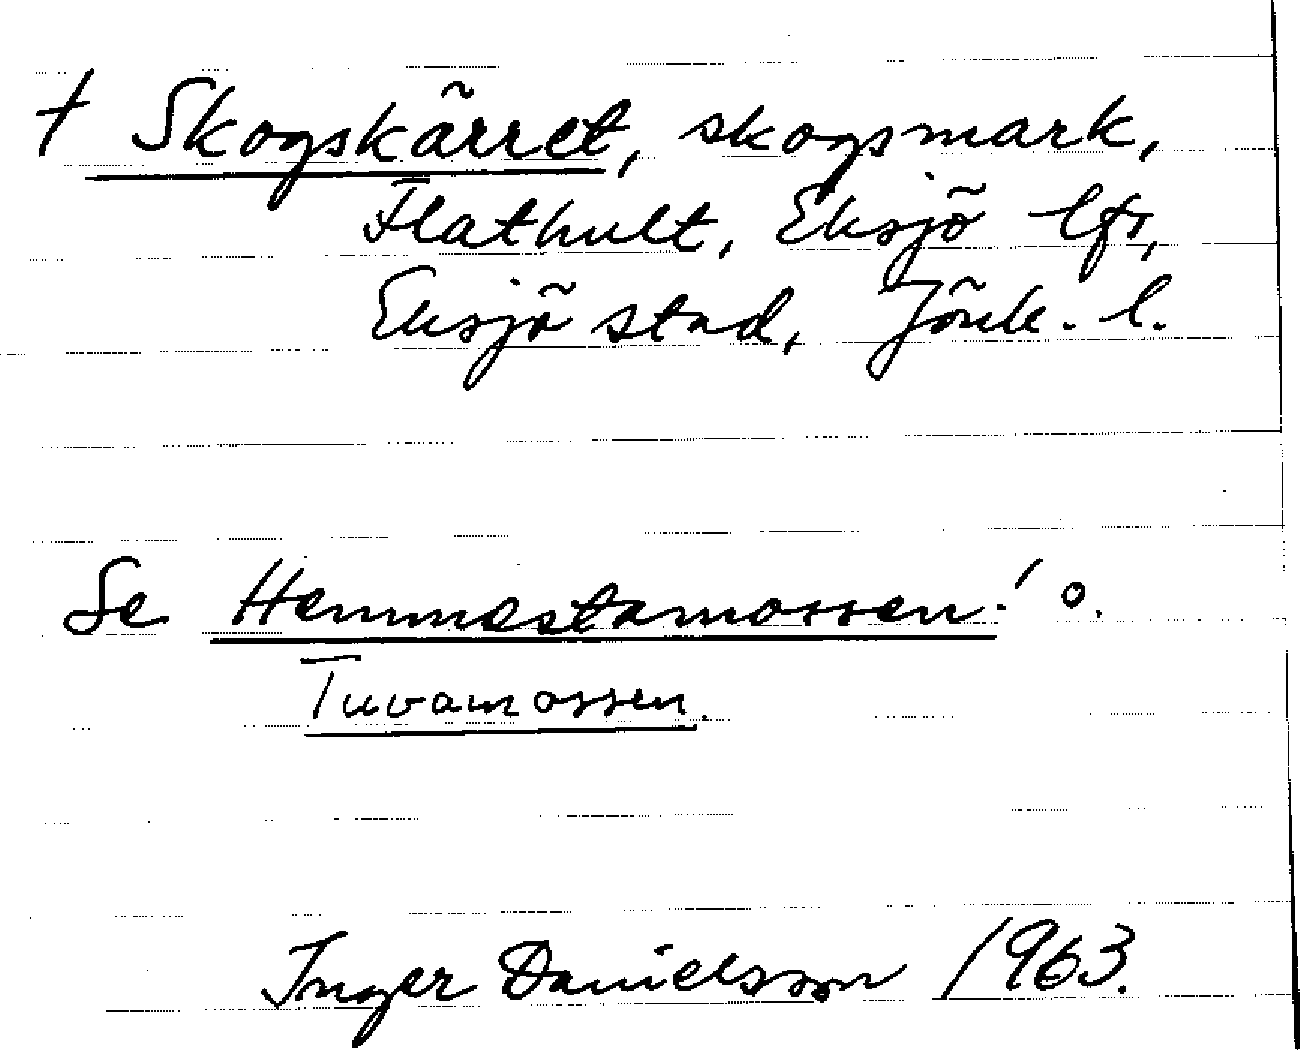 † Skogskärret, skogsmark,
Flathult, Eksjö lfs,
Eksjö stad, Jönk. l.
Se Hemmestamossen! o.
Tuvamossen.
Inger Danielsson 1963.